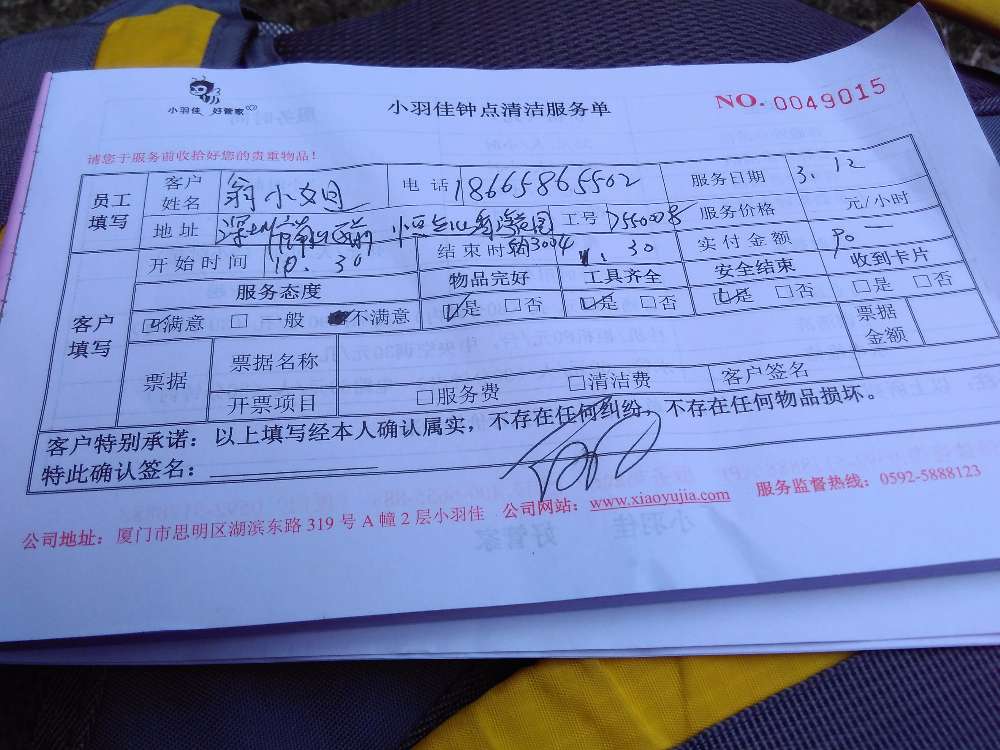 小羽佳 好管家
小羽佳钟点清洁服务单
NO. 0049015
请您于服务前收拾好您的贵重物品！
员工填写 客户姓名 翁小姐 电话 18665865502 服务日期 3.12
地址 深圳 工号 服务价格 元/小时
客户填写 开始时间 10.30 结束时间 30 实付金额 90 一
服务态度 物品完好 工具齐全 安全结束 收到卡片
☑满意 □ 一般 不满意 ☑是 □否 ☑是 □否 ☑是 □否 □是 □否
票据 票据名称 票据金额
开票项目 □服务费 □清洁费 客户签名
客户特别承诺：以上填写经本人确认属实，不存在任何纠纷，不存在任何物品损坏。
特此确认签名：
公司地址：厦门市思明区湖滨东路 319 号 A 幢 2 层小羽佳 公司网站：www.xiaoyujia.com 服务监督热线：0592-5888123